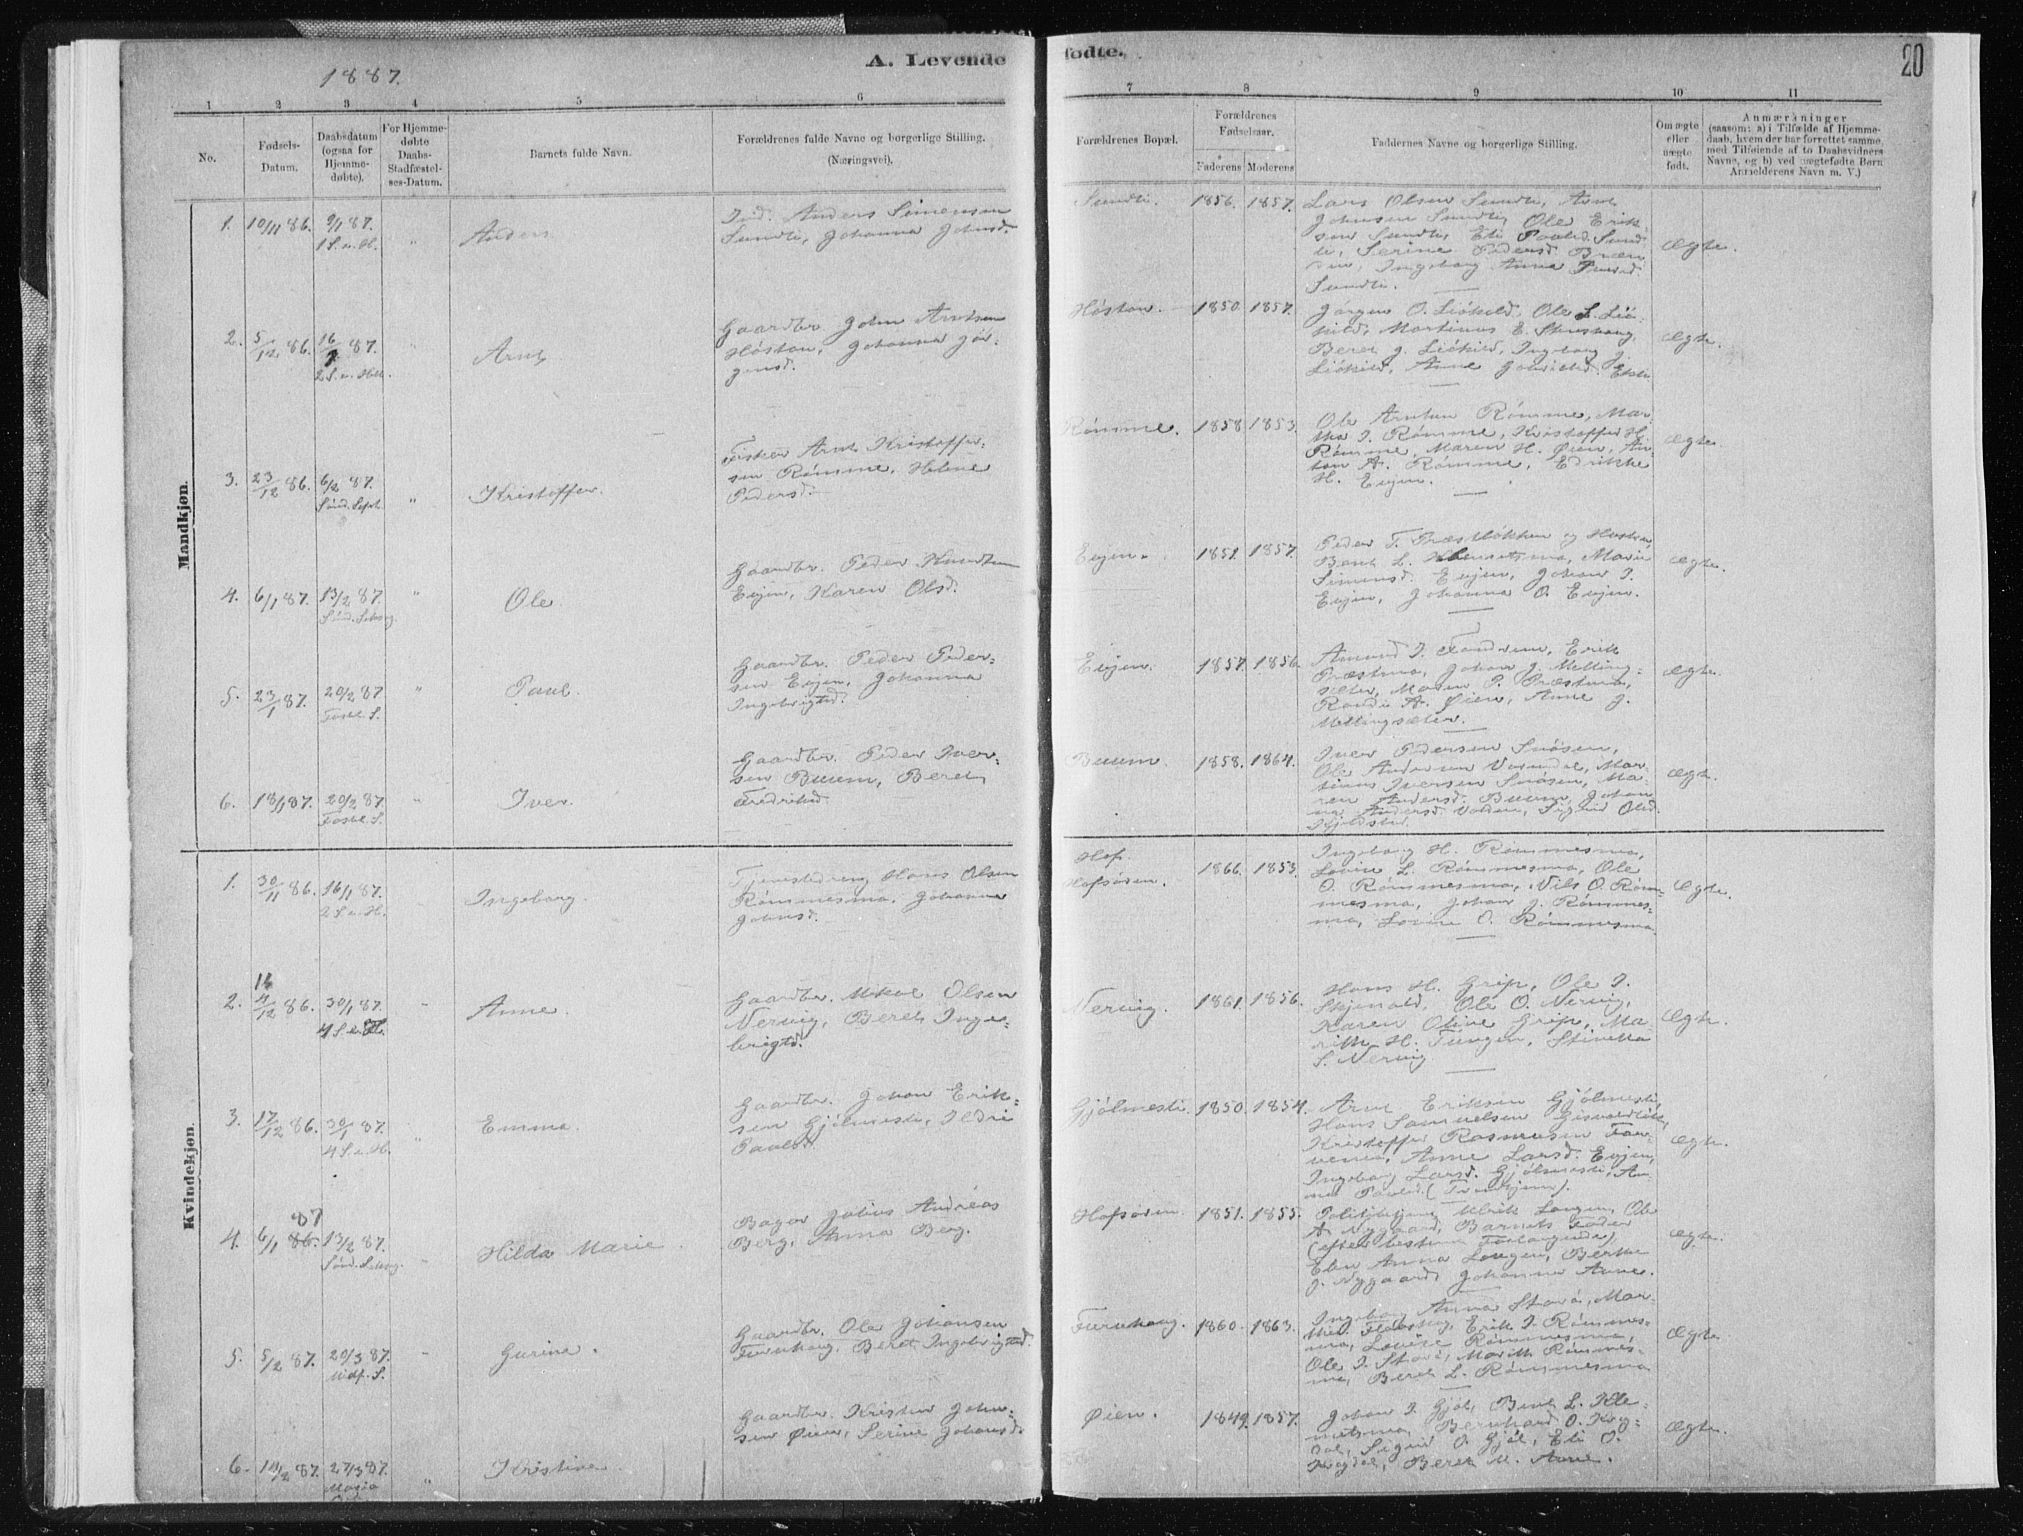 1887.
A. Levende
fødte.
20
1 2 3 4 5 6
7 8 9 10 11
No.
Fødsels-
Datum.
Daabsdatum
(ogsaa for
Hjemme-
døbte).
For Hjemme-
døbte
Daabs-
Stadfæstel-
ses-Datum.
Barnets fulde Navn.
Forældrenes fulde Navne og borgerlige Stilling.
(Næringsvei).
Forældrenes Bopæl.
Forældrenes
Fødselsaar.
Faderens Moderens
Faddernes Navne og borgerlige Stilling.
Om ægte
eller
uægte
født.
Anmærkninger
(saasom: a) i Tilfælde af Hjemme-
daab, hvem der har forrettet samme,
med Tilføiende af to Daabsvidners
Navne, og b) ved uægtefødte Børn
Anmelderens Navn m. V.)
Mandkjøn.
1. 10/11 86. 9/1 87.
1 S. e. H. "
Anders
Ind. Anders Simensen
Sundli, Johanna Johnsd.
Sundli. 1856. 1857.
Lars Olsen Sundli, Arnt
Johnsen Sundli, Ole Erik-
sen Sundli, Eli Paulsd. Sund-
li, Serine Pedersd.
Ingeborg Anna
Sundli.
Ægte.
2. 5/12 86. 16/1 87.
2 S. e. H.
Arnt
Gaardbr. John Arntsen
Høston, Johanna Jør-
gensd.
Høston. 1850 1857.
Jørgen O. Liökild, Ole L. Liö-
kild, Martinus E.
Beret J. Liökild, Ingeborg J.
Liökild, Anne
Ægte.
3. 23/12 86. 6/2 87.
Sönd. Sept. "
Kristoffer.
Fisker Arnt Kristoffer-
sen Rømme, Helene
Pedersd.
Rømme. 1858 1853.
Ole Arntsen Rømme, Mar-
tha I. Rømme, Kristoffer H.
Rømme, Maren H. Øien, An-
ton A. Rømme, Edrikke
H. Evjen.
Ægte.
4. 6/1 87. 13/2 87. "
Sönd. Seksag.
Ole.
Gaardbr. Peder Knudtsen
Evjen, Karen Olsd.
Evjen. 1851. 1857.
Peder T. Præstbökken og Hustru
Berit L. Marie
Simensd. Evjen, Johan I.
Evjen, Johanna O. Evjen.
Ægte.
5. 23/1 87. 20/2 87 "
Fastel. S.
Paul.
Gaardbr. Peder Peder-
sen Evjen, Johanna
Ingebrigtsd.
Evjen. 1857. 1856.
Amund I. Fandrem, Erik
Præstmo, Johan J. Melling-
sæter, Maren P. Præstmo,
Randi A. Øien, Anne J.
Mellingsæter.
Ægte.
6. 18/1 87. 20/2 87. "
Fastel. S.
Iver.
Gaardbr. Peder Iver-
sen Buum, Beret
Fredriksd.
Buum. 1858. 1864.
Iver Pedersen Snösen,
Ole Andersen Mar-
Iversen Snösen, Ma-
ren Andersd. Buum, Johan-
na Andersd. Sigrid Olsd.
Ægte.
Kvindekjøn.
1. 30/11 86. 16/1 87.
2 S. e. H.
Ingeborg.
Tjenestedreng Hans Olsen
Rømmesmo, Johanna
Johnsd.
Hof.
Hofsösen. 1866. 1853.
Ingeborg H. Rømmesmo,
Lovise L. Rømmesmo, Ole
O. Rømmesmo, Nils O. Røm-
mesmo, Johan J. Rømmes-
mo, Lovise O. Rømmesmo
Ægte.
2. 16
4/12 86. 30/1 87. "
4 S. e. H.
Anne.
Gaardbr. Mikal Olsen
Nervig, Beret Inge-
brigtsd.
Nervig. 1861. 1856.
Hans H. Grip, Ole I.
Skjenald, Ole O. Nervig,
Karen Oline Grip, Ma-
rith H. Tungen,
S. Nervig
Ægte.
3. 17/12 86. 30/1 87. "
4 S. e. H.
Emma.
Gaardbr. Johan Erik-
sen Gjölmesli, Ildri
Paulsd.
Gjölmesli. 1850. 1854.
Arnt Eriksen Gjölmesli,
Hans Samuelsen
Kristoffer Rasmussen
Anne Larsd. Evjen,
Ingeborg Larsd. Gjölmesli, An-
na Paulsd. (Trondhjem).
Ægte.
4. 6/1 86. 87 13/2 87. "
Sönd. Seksag.
Hilda Marie.
Bager Julius Andreas
Berg, Anna Berg.
Hofsösen. 1851. 1855.
Politibetjent Ulrik Langen, Ole
A. Nygaard, Barnets Fader
(efter bestemt Forlangende),
Elen Anna Langen, Berthe
J. Nygaard, Johanna Aune.
Ægte.
5. 5/2 87. 20/3 87. "
Midf. S.
Gurine.
Gaardbr. Ole Johansen
Furuhaug, Beret Ingebrigtsd.
Furuhaug. 1860. 1863.
Ingebor Anna Storö, Mar-
Erik I. Rømmes-
mo, Lovise Rømmesmo,
Ole I. Storö, Marith Rømmes-
mo, Beret L. Rømmesmo
Ægte.
6. 14/2 87. 27/3 87. "
Maria
Kristine.
Gaardbr. Kristen John-
sen Øien, Serine Johansd.
Øien. 1849. 1857.
Johan I. Gjöl, Berit L. Kle-
metsmo, Bernhard O. Krog-
dal, Sigrid O. Gjöl, Eli O.
Krogdal, Beret M. Aune.
Ægte.